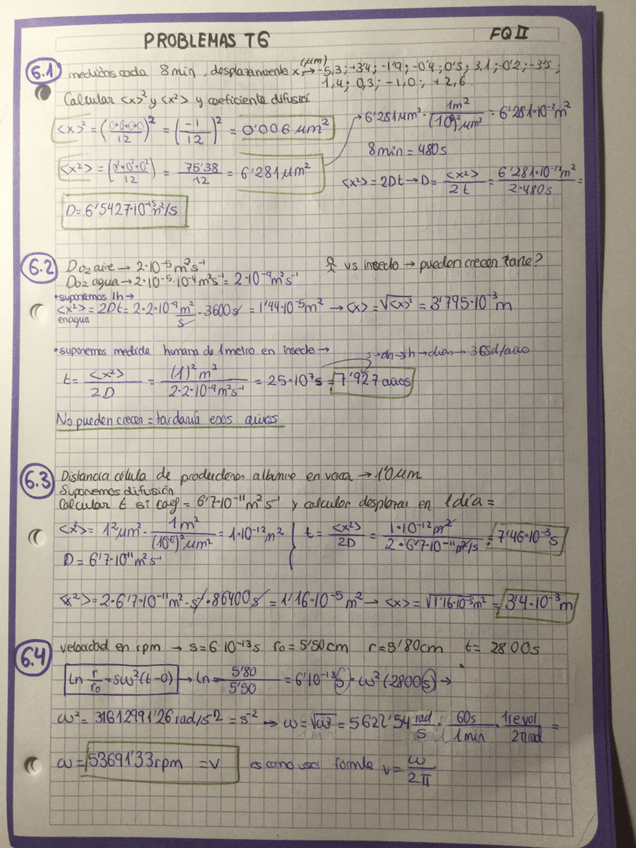 PROBLEMAS T6 FQ II
6.1 medidos cada 8 min, desplazamiento x (μm) → -5,3; +3'4; -1'9; -0'4; 0'5; 3,1; -0'2; -3'5;
1,4; 0,3; -1,0; +2,6
Calcular <x>² y <x²> y coeficiente difusión
<x>² = ( /12)² = (-1/12)² = 0'006 μm²
6'281 μm² · 1m²/(10⁶)² μm² = 6'281·10⁻¹² m²
8min = 480s
<x²> = ( /12) = 75'38/12 = 6'281 μm²
<x²> = 2Dt → D = <x²>/2t = 6'281·10⁻¹² m²/2·480s =
D = 6'5427·10⁻¹⁵ m²/s
6.2 D O2 aire → 2·10⁻⁵ m²s⁻¹ vs insecto → pueden crecer tanto?
D O2 agua → 2·10⁻⁵·10⁻⁴ m²s⁻¹ = 2·10⁻⁹ m²s⁻¹
• suponemos 1h →
<x²> = 2Dt = 2·2·10⁻⁹ m²/s · 3600s = 1'44·10⁻⁵ m² → <x> = √<x>² = 3'795·10⁻³ m
en agua
• suponemos medida humana de 1 metro en insecto → s → h → dias → 365d/año
t = <x²>/2D = (1)² m²/2·2·10⁻⁹ m²s⁻¹ = 25·10⁷ s = 7'927 años
No pueden crecer = tardaría esos años
6.3 Distancia célula de productores albúmina en vaca → 1'0 μm
Suponemos difusión
Calcular t si coef = 6'7·10⁻¹¹ m²s⁻¹ y calcular desplazar en 1 día =
<x²> = 1² μm² · 1m²/(10⁶)² μm² = 1·10⁻¹² m² t = <x²>/2D = 1·10⁻¹² m²/2·6'7·10⁻¹¹ m²/s = 7'46·10⁻³ s
D = 6'7·10¹¹ m²s⁻¹
<x²> = 2·6'7·10⁻¹¹ m²·s⁻¹·86400s = 1'16·10⁻⁵ m² → <x> = √1'16·10⁻⁵ m² = 3'4·10⁻³ m
6.4 velocidad en rpm → s = 6·10⁻¹³ s r₀ = 5'50cm r = 5'80cm t = 2800s
ln r/r₀ = sω²(t-0) → ln = 5'80/5'50 = 6'10⁻¹³ s · ω² (2800s) →
ω² = 31612991'26 rad/s² = s⁻² → ω = √ω² = 5622'54 rad/s · 60s/1min · 1revol/2πrad =
ω = 53691'33rpm = v es como usar formula v = ω/2π